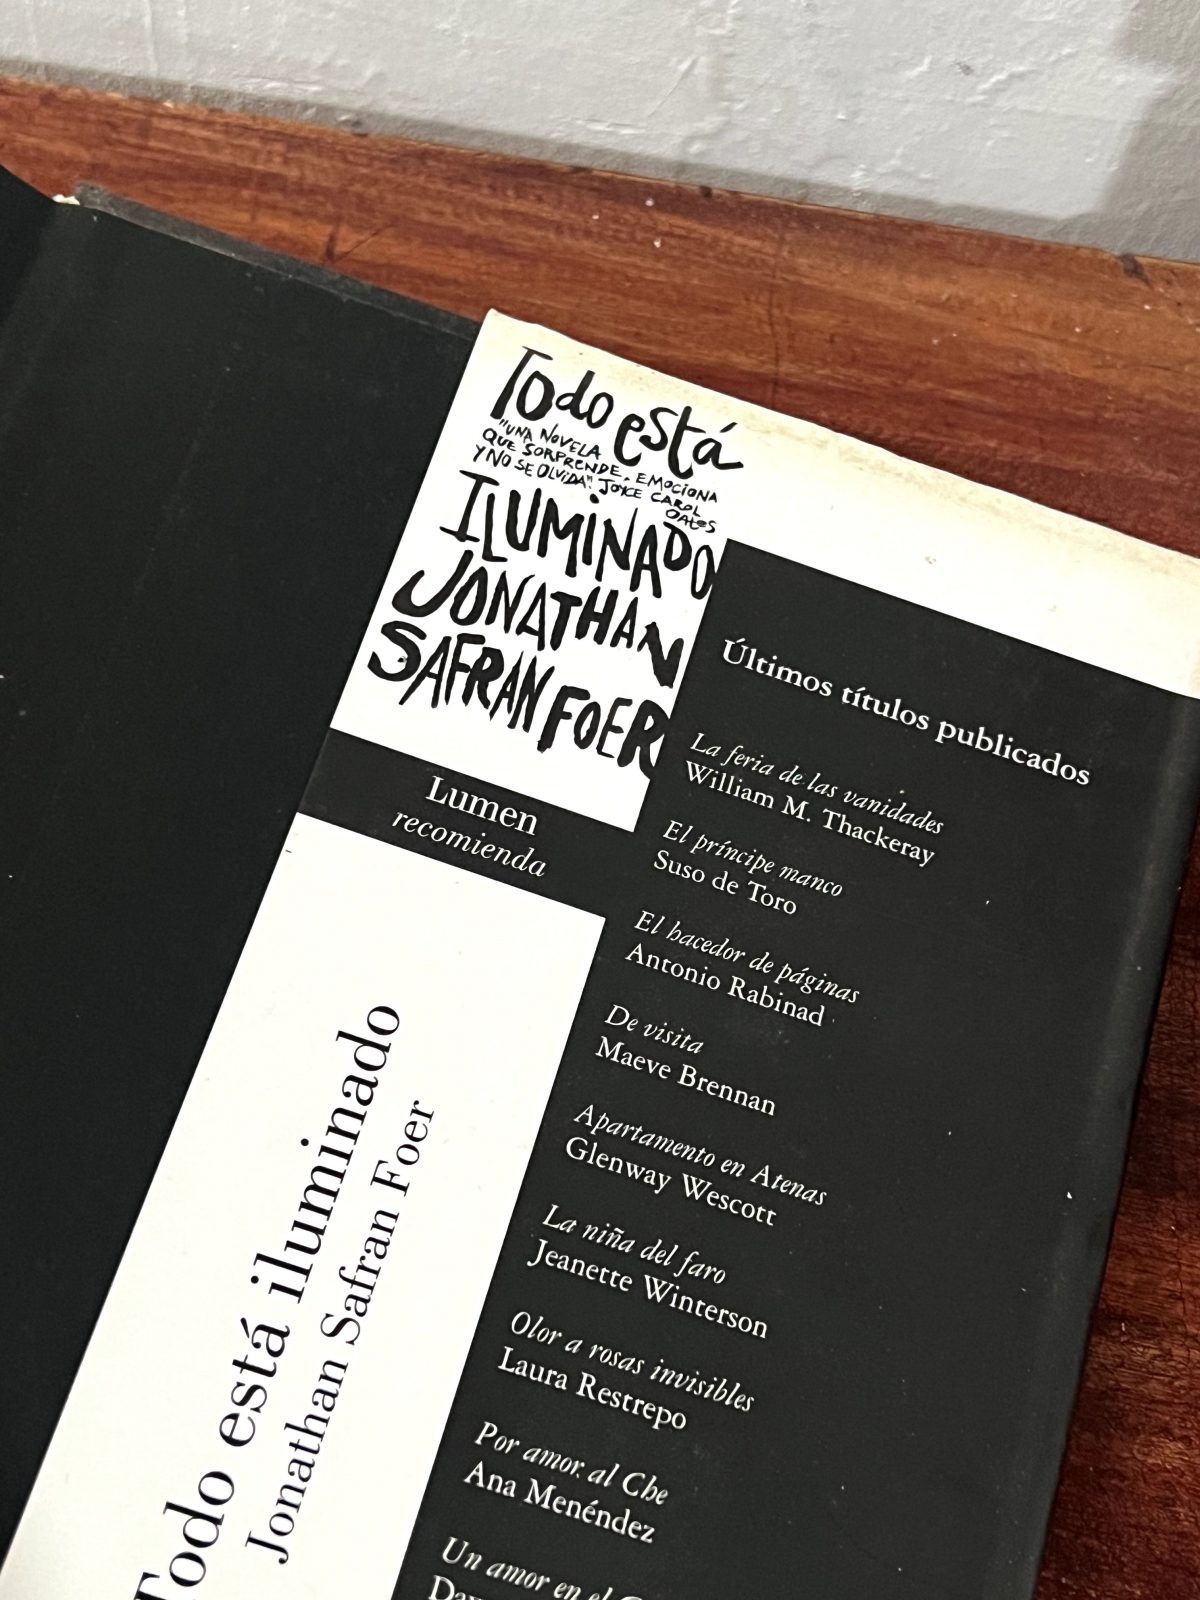 Todo está
"UNA NOVELA
QUE SORPRENDE, EMOCIONA
Y NO SE OLVIDA". JOYCE CAROL
OATES
ILUMINADO
JONATHAN
SAFRAN FOER
Lumen
recomienda
Todo está iluminado
Jonathan Safran Foer
Últimos títulos publicados
La feria de las vanidades
William M. Thackeray
El príncipe manco
Suso de Toro
El hacedor de páginas
Antonio Rabinad
De visita
Maeve Brennan
Apartamento en Atenas
Glenway Wescott
La niña del faro
Jeanette Winterson
Olor a rosas invisibles
Laura Restrepo
Por amor al Che
Ana Menéndez
Un amor en el